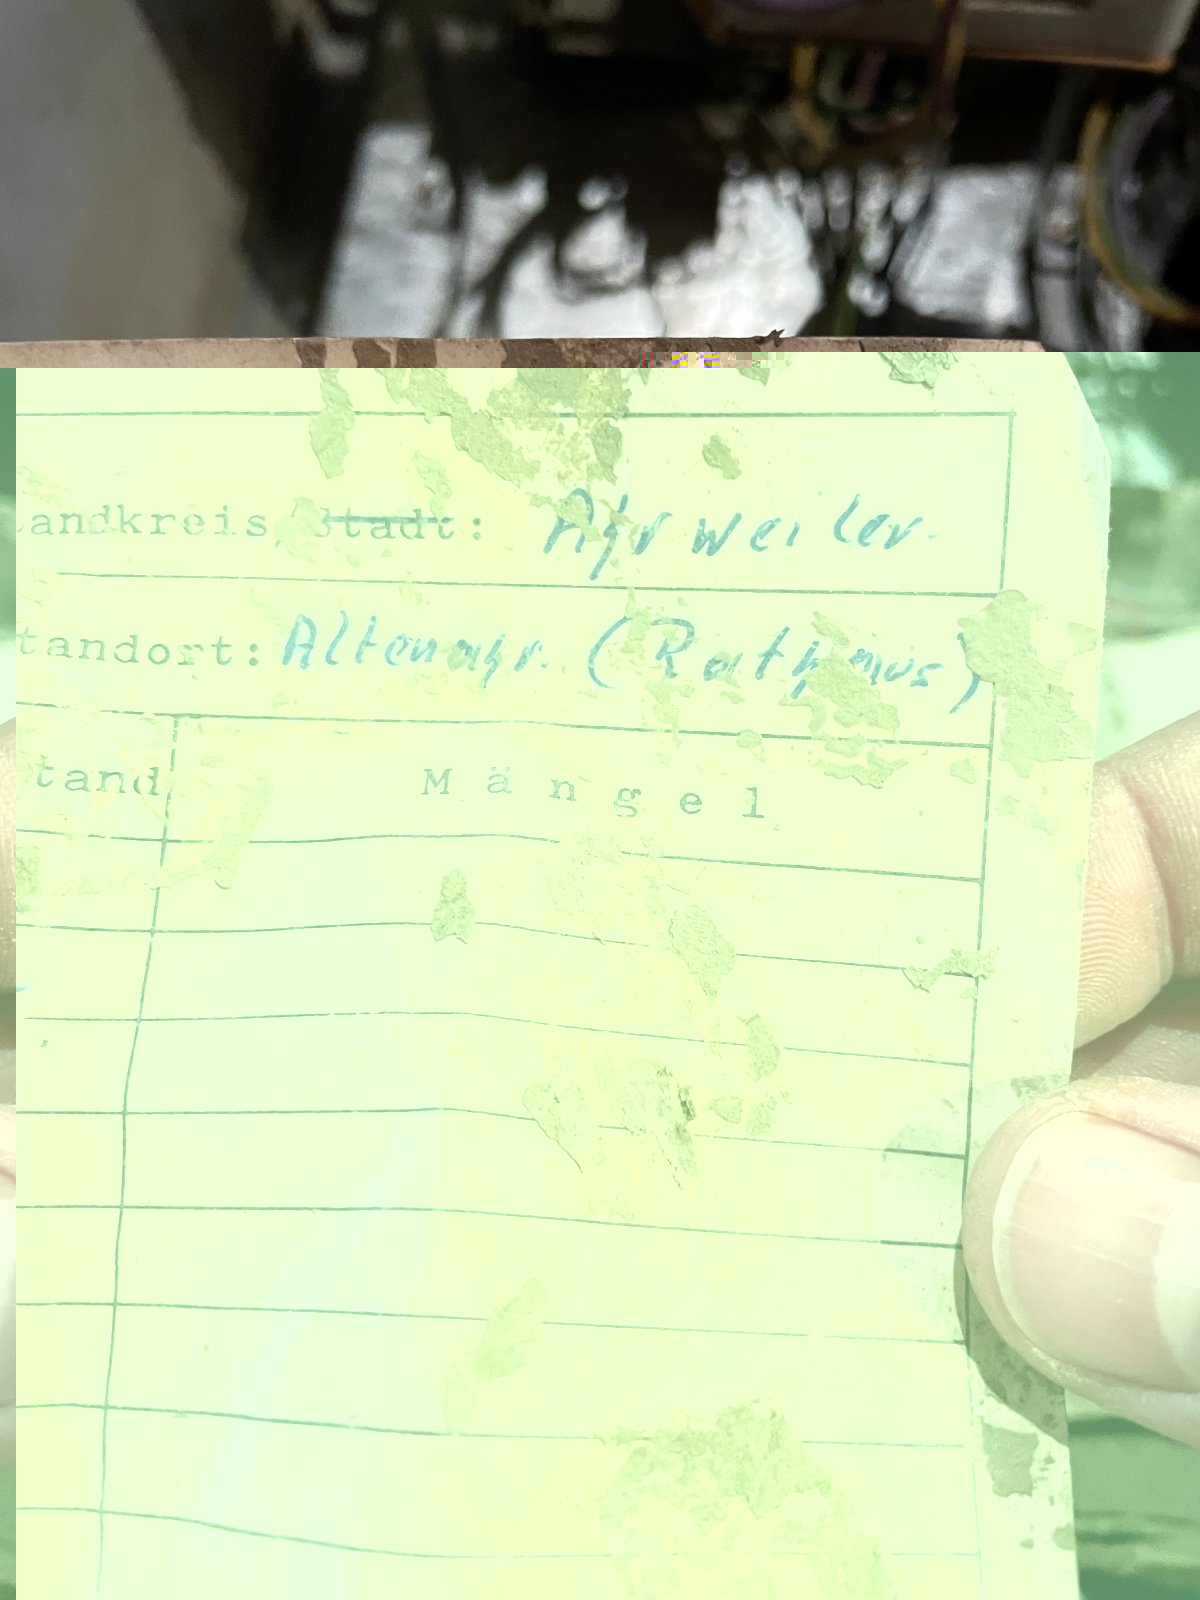 Landkreis/Stadt: Ahrweiler.
tandort: Altenahr. (Rathaus)
tand
Mängel